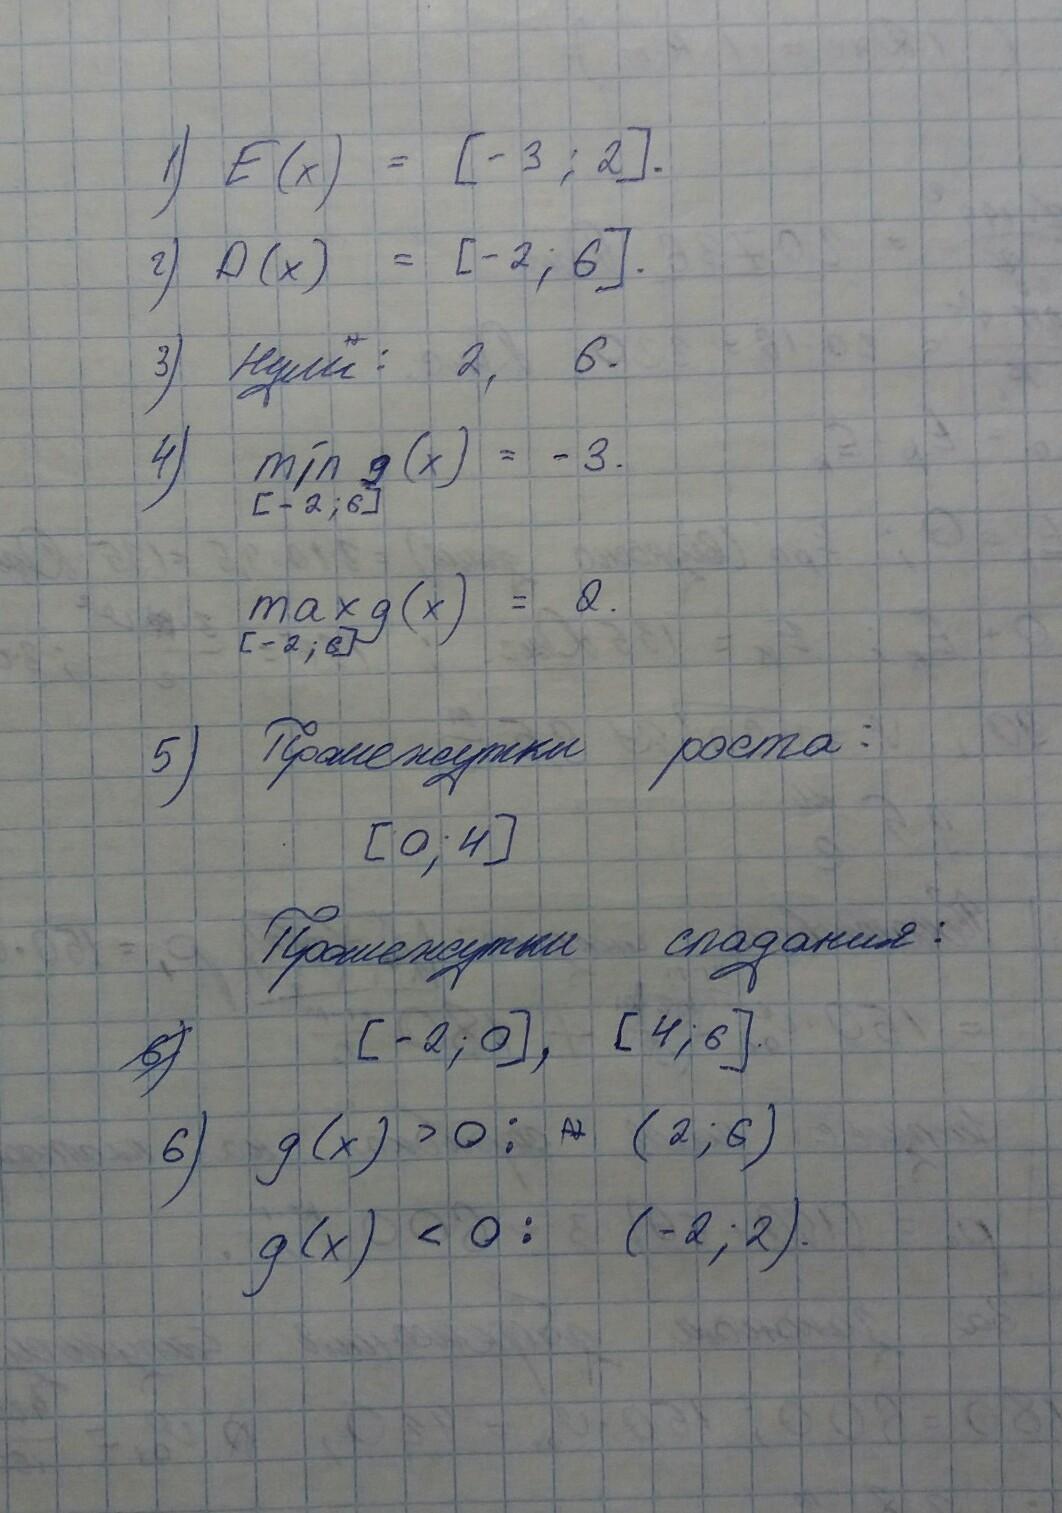 1) E(x) = [-3; 2].
2) D(x) = [-2; 6].
3) Нули: 2, 6.
4) min g(x) = -3.
[-2; 6]
max g(x) = 2.
[-2; 6]
5) Промежутки роста:
[0; 4]
Промежутки спадания:
[-2; 0], [4; 6].
6) g(x) > 0: (2; 6)
g(x) < 0: (-2; 2).